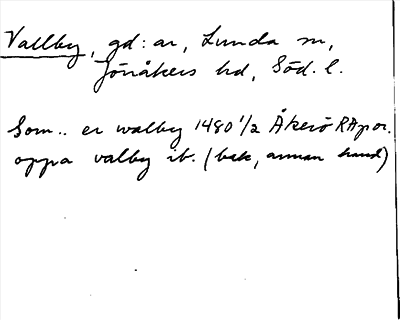 Vallby, gd: ar, Lunda sn,
Jönåkers hd, Söd. l.
Som.. er walby 1480 1/2 Åkerö RApor.
oppa valby ib. (bak, annan hand)